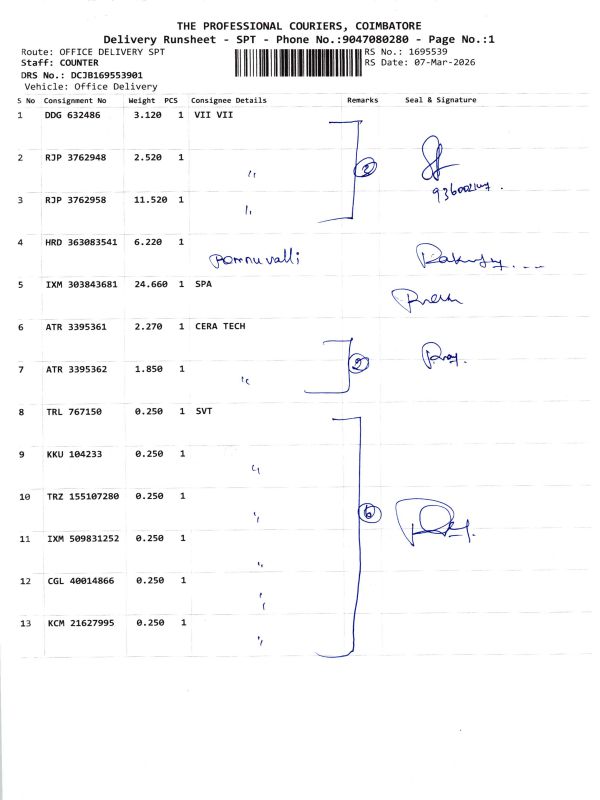 THE PROFESSIONAL COURIERS, COIMBATORE
Delivery Runsheet - SPT - Phone No.:9047080280 - Page No.:1
Route: OFFICE DELIVERY SPT RS No.: 1695539
Staff: COUNTER RS Date: 07-Mar-2026
DRS No.: DCJB169553901
Vehicle: Office Delivery
S No Consignment No Weight PCS Consignee Details Remarks Seal & Signature
1 DDG 632486 3.120 1 VII VII
2 RJP 3762948 2.520 1 ,,
3 RJP 3762958 11.520 1 ,,
4 HRD 363083541 6.220 1
5 IXM 303843681 24.660 1 SPA
6 ATR 3395361 2.270 1 CERA TECH
7 ATR 3395362 1.850 1 ,, 2
8 TRL 767150 0.250 1 SVT
9 KKU 104233 0.250 1 ,,
10 TRZ 155107280 0.250 1 ,, 6
11 IXM 509831252 0.250 1 ,,
12 CGL 40014866 0.250 1 ,,
13 KCM 21627995 0.250 1 ,,